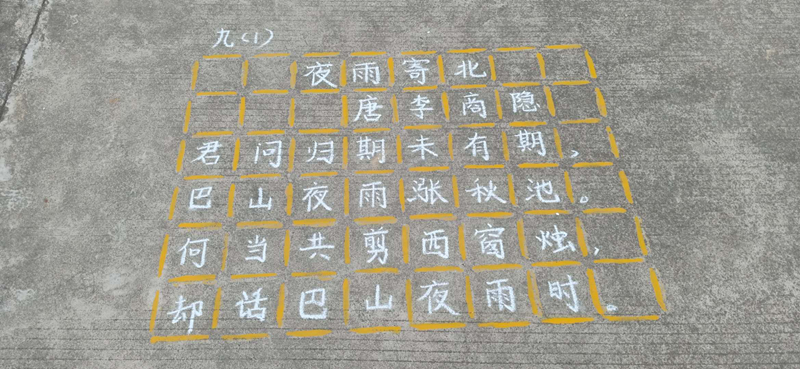 九(1)
夜雨寄北
唐李商隐
君问归期未有期，
巴山夜雨涨秋池。
何当共剪西窗烛，
却话巴山夜雨时。